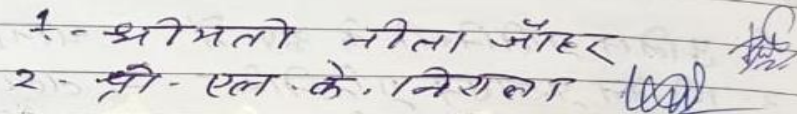 1.- श्रीमती नीता जौहर
2 - श्री - एल. के. निराला